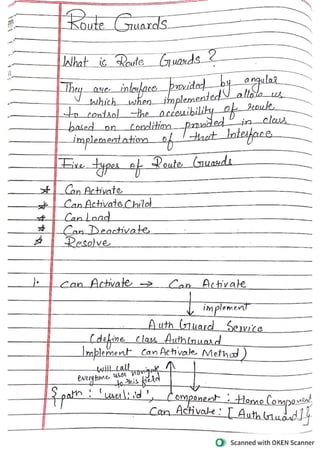 Route Guards
What is Route Guards?
They are interface provided by angular
which when implemented allow us
to control the accessibility of route
based on condition provided in class
implementation of that Interface
Five types of Route Guards
* Can Activate
* Can Activate Child
* Can Load
* Can Deactivate
* Resolve
1. Can Activate → Can Activate
implement
Auth Guard Service
(define class AuthGuard
Implement CanActivate Method)
will call
everytime user navigate
to this field
{path: 'user/:id', Component: HomeComponent
Can Activate: [AuthGuard]}
Scanned with OKEN Scanner